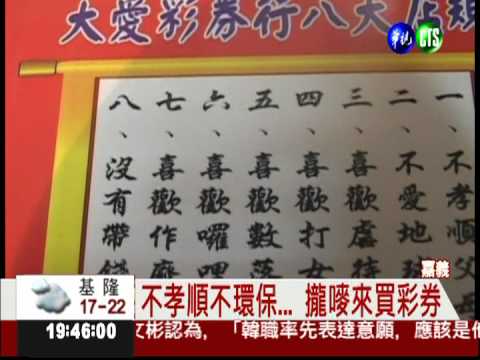 大愛彩券行八大店規
華視 CTS
一、不孝順父母
二、不愛地球
三、喜歡虐待
四、喜歡打女
五、喜歡數落
六、喜歡囉哩
七、喜歡作廢
八、沒有帶錢
嘉義
基隆
17-22
不孝順不環保... 攏嘜來買彩券
19:46:00
文彬認為,「韓職率先表達意願,應該是他